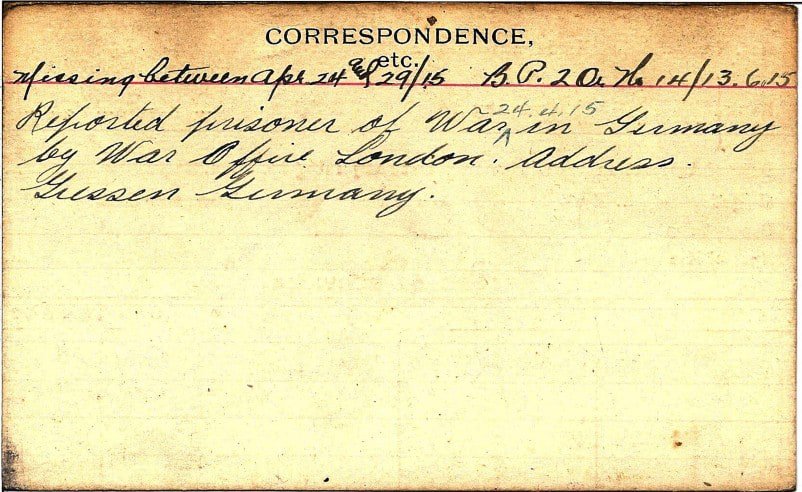 CORRESPONDENCE,
etc.
Missing between Apr 24 and 29/15 B. P. 2 Or. No 14/13.6.15
24.4.15
Reported prisoner of War in Germany
by War Office London. Address.
Giessen Germany.